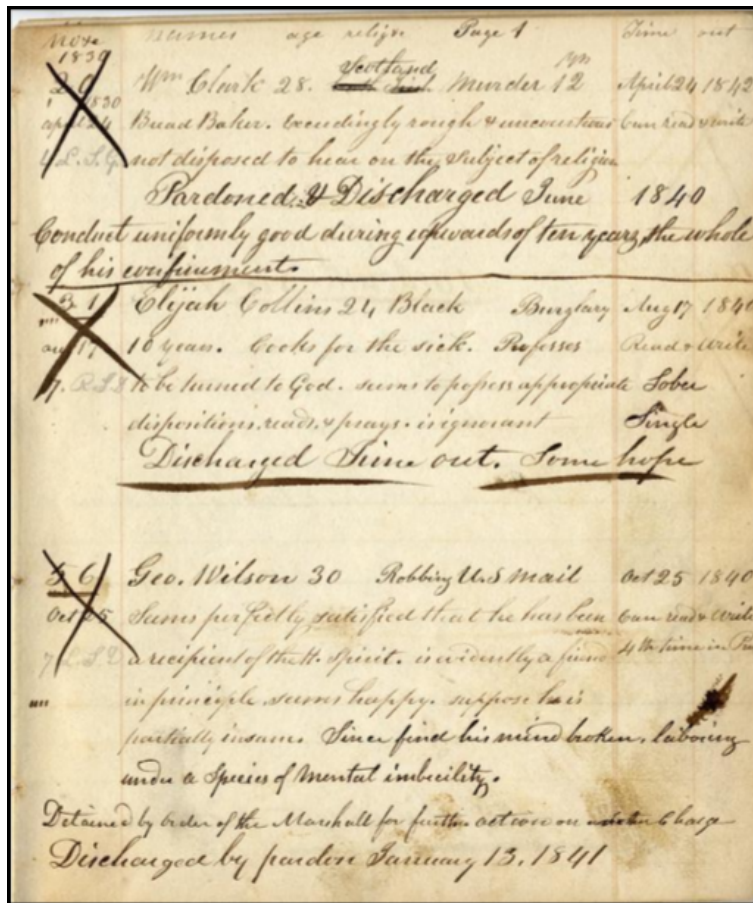 Note names age relign Page 1 Time out
1839
29 Wm Clark 28. Scotland Murder 12 yrs April 24 1842
1830
april 24 Bread Baker. Exceedingly rough & uncourteous Can read & write
not disposed to hear on the subject of religion
Pardoned & Discharged June 1840
Conduct uniformly good during upwards of ten years, the whole
of his confinement.
31 Elijah Collins 24 Black Burglary Aug 17 1840
aug 17 10 years. Cooks for the sick. Professes Read & Write
7. to be turned to God. seems to possess appropriate Sober
dispositions, reads, & prays. is ignorant Single
Discharged Time out. Some hope
56 Geo. Wilson 30 Robbing U.S mail Oct 25 1840
Oct 25 Seems perfectly satisfied that he has been Can read & Write
7 a recipient of the H. Spirit. is evidently a 4th time in
in principle. seems happy. suppose he is
partially insane. Since find his mind broken. laboring
under a Species of mental imbecility.
Detained by order of the Marshall for further action on Charge
Discharged by pardon January 13. 1841